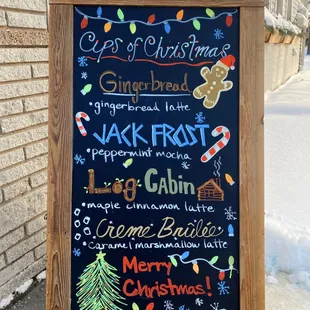 Cups of Christmas
Gingerbread
gingerbread latte
JACK FROST
peppermint mocha
Log Cabin
maple cinnamon latte
Creme Brûlée
caramel marshmallow latte
Merry
Christmas!